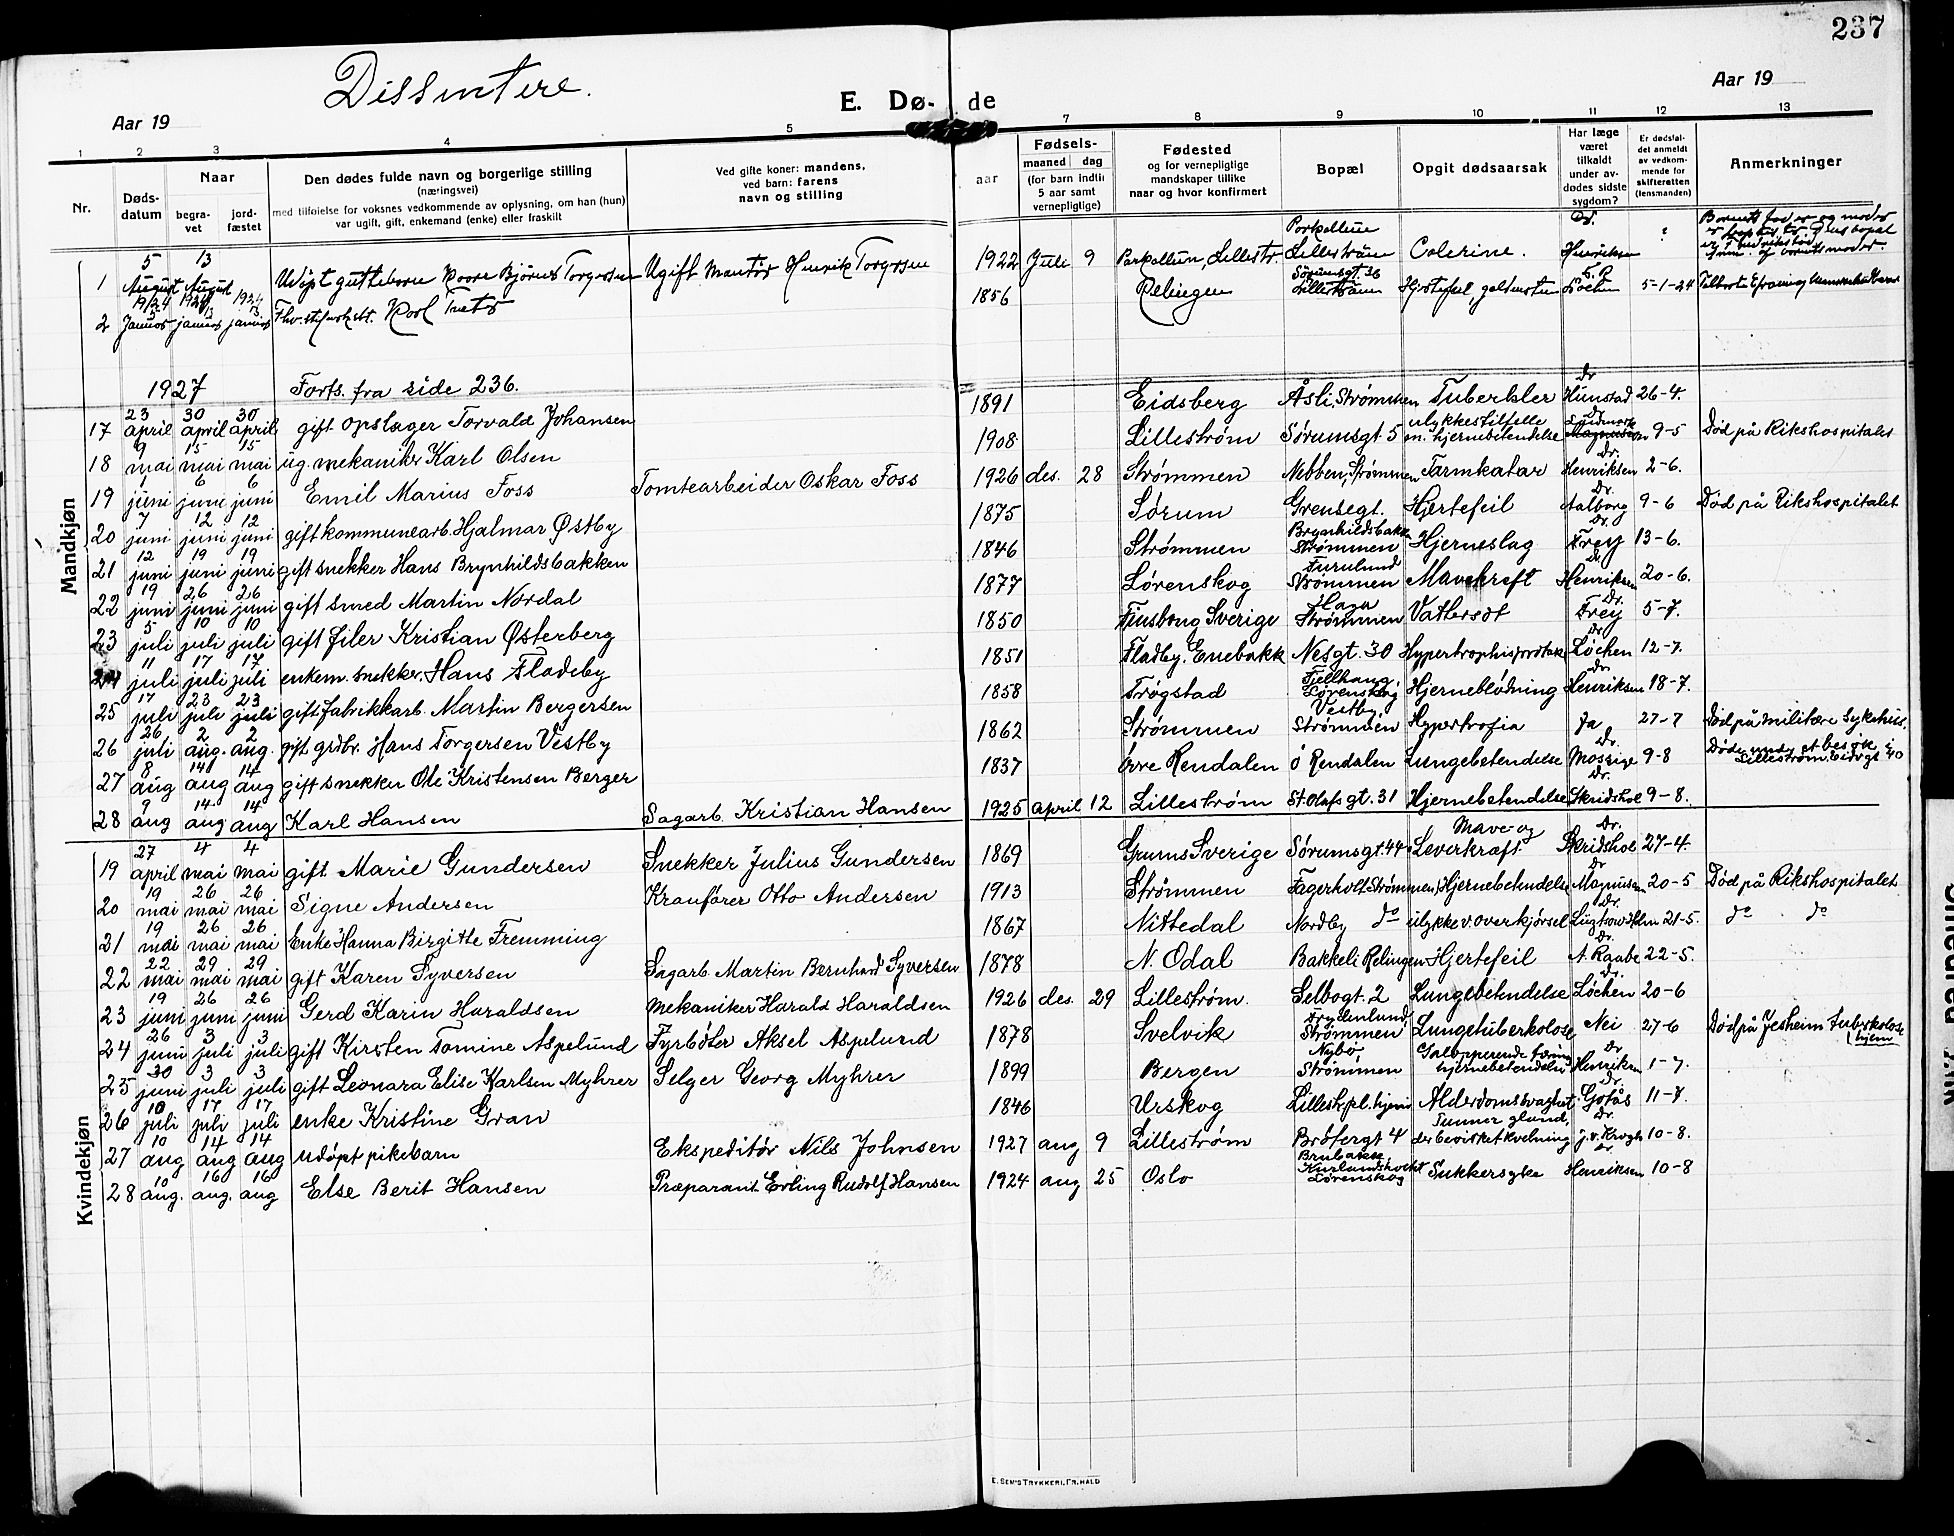 237
Dissentere.
Aar 19
E. Dø- de
Aar 19
1 2 3 4 5 7 8 9 10 11 12 13
Nr.
Døds-datum
Naar
begra-vet
jord-fæstet
Den dødes fulde navn og borgerlige stilling
(næringsvei)
med tilføielse for voksnes vedkommende av oplysning, om han (hun)
var ugift, gift, enkemand (enke) eller fraskilt
Ved gifte koner: mandens,
ved barn: farens
navn og stilling
aar
Fødsels-
maaned dag
(for barn indtil
5 aar samt
vernepligtige)
Fødested
og for vernepligtige
mandskaper tillike
naar og hvor konfirmert
Bopæl
Opgit dødsaarsak
Har læge
været
tilkaldt
under av-
dødes sidste
sygdom?
Er dødsfal-
det anmeldt
av vedkom-
mende for
skifteretten
(lensmanden)
Anmerkninger
1 5 August 13 August Udöpt guttebarn Kaare Björnar Torgersen Ugift Montör Henrik Torgersen 1922 Juli 9 Lillestr. Lillestrøm Colerine. Dr. Henriksen
2 1924 Januar 1924 januar 1924 januar Karl 1856 Rælingen Sørumsgt. 36 Lillestrøm Hjertefeil, Løchen 5-1-24
1927 Forts. fra side 236.
Mandkjøn
17 23 april 30 april 30 april gift opslager Torvald Johansen 1891 Eidsberg Åsli, Strømmen Tuberkler Dr Hunstad 26-4.
18 9 mai 15 mai 15 mai ug. mekaniker Karl Olsen 1908 Lillestrøm Sørumsgt 5 ulykkestilfelle m. hjernebetendelse Dr. 9-5 Død på Rikshospitalet
19 1 juni 6 juni 6 juni Emil Marius Foss Tomtearbeider Oskar Foss 1926 des. 28 Strømmen Nebben, Strømmen Tarmkatar Dr. Henriksen 2-6.
20 7 juni 12 juni 12 juni gift kommunearb. Hjalmar Østby 1875 Sørum Grensegt. Hjertefeil Dr. Aalborg 9-6 Død på Rikshospitalet
21 12 juni 19 juni 19 juni gift snekker Hans Brynhildsbakken 1846 Strømmen Brynhildsbakken Strømmen Hjerneslag Dr. Frey 13-6.
22 19 juni 26 juni 26 juni gift smed Martin Nordal 1877 Lørenskog Furulund Strømmen Mavekreft Dr Henriksen 20-6.
23 5 juli 10 juli 10 juli gift filer Kristian Østerberg 1850 Sverige Haga Strømmen Vattersot Dr. Frey 5-7.
24 11 juli 17 juli 17 juli enkem. snekker. Hans Fladeby 1851 Fladby, Enebakk Nesgt. 30 Dr Løchen 12-7.
25 17 juli 23 juli 23 juli gift fabrikkarb. Martin Bergersen 1858 Trøgstad Fjellhaug, Lørenskog Hjerneblödning Dr Henriksen 18-7.
26 26 juli 2 aug. 2 aug. gift grdbr. Hans Torgersen Vestby 1862 Strømmen Vestby, Strømmen Hypertrofia Ja 27-7 Død på Militære Sykehus.
27 8 aug 14 aug 14 aug gift snekker Ole Kristensen Berger 1837 Øvre Rendalen Ö Rendalen Lungebetendelse Dr. Mossige 9-8 Döde under et besök i Lillestrøm, Eidvgt 40
28 9 aug 14 aug 14 aug Karl Hansen Sagarb. Kristian Hansen 1925 april 12 Lillestrøm St. Olafs gt. 31 Hjernebetendelse Dr. Skridshol 9-8.
Kvindekjøn
19 27 april 4 mai 4 mai gift Marie Gundersen Snekker Julius Gundersen 1869 Grums Sverige Sørumsgt. 44 Mave- og Leverkræft Dr. Skridshol 27-4.
20 19 mai 26 mai 26 mai Signe Andersen Kranfører Otto Andersen 1913 Strømmen Fagerholt Strømmen Hjernebetendelse Dr Magnussen 20-5 Død på Rikshospitalet
21 19 mai 26 mai 26 mai Enke Hanna Birgitte Fremming 1867 Nittedal Nordby do ulykke v. overkjørsel Dr. 21-5. do do
22 22 mai 29 mai 29 mai gift Karen Syversen Sagarb. Martin Bernhard Syversen 1878 N. Odal Bakkeli Relingen Hjertefeil Dr. A. Raabe 22-5.
23 19 juni 26 juni 26 juni Gerd Karin Haraldsen Mekaniker Harald Haraldsen 1926 des. 29 Lillestrøm. Selbogt. 2 Lungebetendelse Dr. Löchen 20-6
24 26 juni 3 juli 3 juli gift Kirsten Tomine Aspelund Fyrbøter Aksel Aspelund 1878 Svelvik Strømmen Lungetuberkolose Nei 27-6 Død på Jesheim Tuberkolosehjem
25 30 juni 3 juli 3 juli gift Leonara Elise Karlsen Myhrer Selger Georg Myhrer 1899 Bergen Nybo, Strømmen Galopperende tæring hjernebetendelse Dr Henriksen 1-7.
26 10 juli 17 juli 17 juli enke Kristine Gran 1846 Urskog Lillestr. pl. hjem Alderdomssvaghet Dr. Gotås 11-7.
27 10 aug 14 aug 14 aug udøpt pikebarn Ekspeditør Nils Johnsen 1927 aug 9 Lillestrøm Brötergt 4 kvelning Dr. J. v. Krogh 10-8.
28 10 aug. 16 aug. 16 aug Else Berit Hansen Præparant Erling Rudolf Hansen 1924 aug 25 Oslo Lørenskog Sukkersyke Dr Henriksen 10-8
E. SEM'S TRYKKERI, FR.HALD